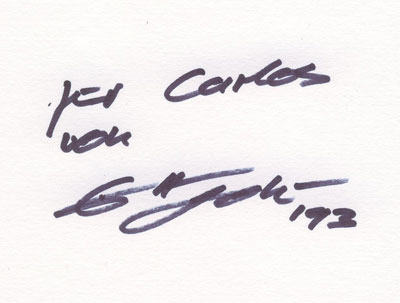 für Carlos
von
'93